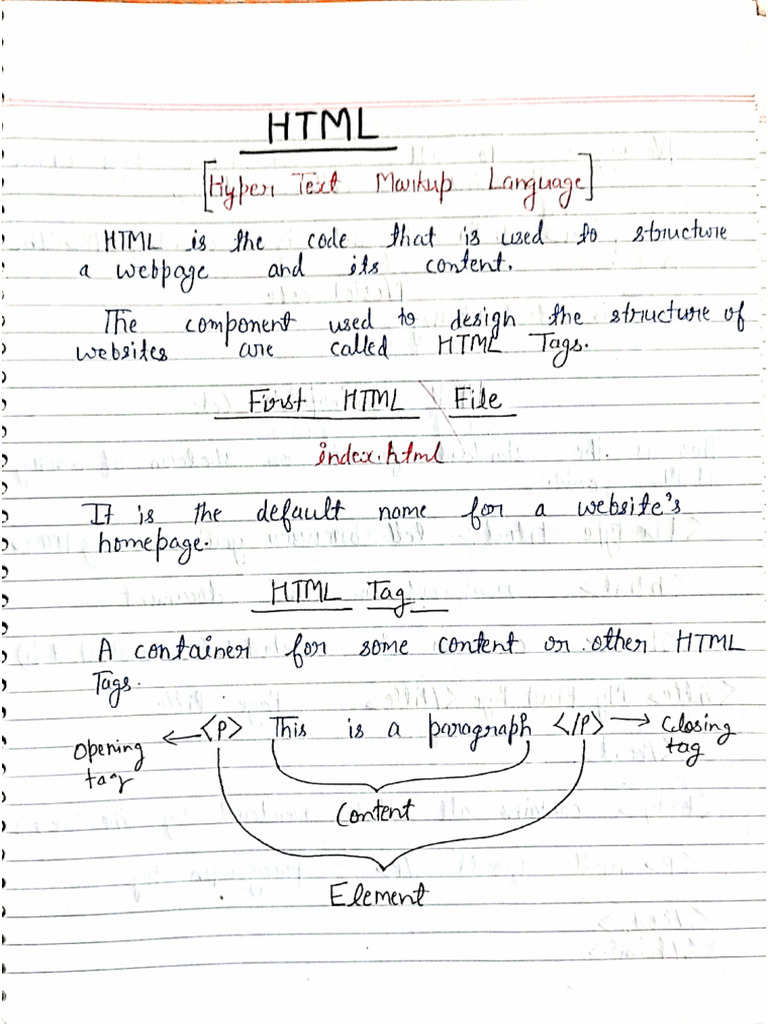 HTML
[Hyper Text Markup Language]
HTML is the code that is used to structure
a webpage and its content.
The component used to design the structure of
websites are called HTML Tags.
First HTML File
index.html
It is the default name for a website's
homepage.
HTML Tag
A container for some content or other HTML
Tags.
Opening tag ← <P> This is a paragraph </P> → Closing tag
Content
Element